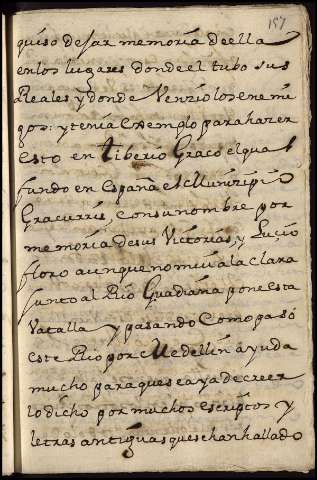 157
quiso dejar memoria de ella
en los lugares donde el tubo sus
Reales y donde Venzio los enemi
gos: y tenia exemplo para hazer
esto en Tiberio Graco el qual
fundo en España el Munizipio
Gracurris, con su nombre por
memoria de sus Victorias, y Luçio
floro aunque no mui a la clara
junto al Rio Guadiana pone esta
Vatalla y pasando Como pasó
este Rio por Medellin ayuda
mucho para que se aya de creer
lo dicho por muchos escriptos y
letras antiguas que se han hallado